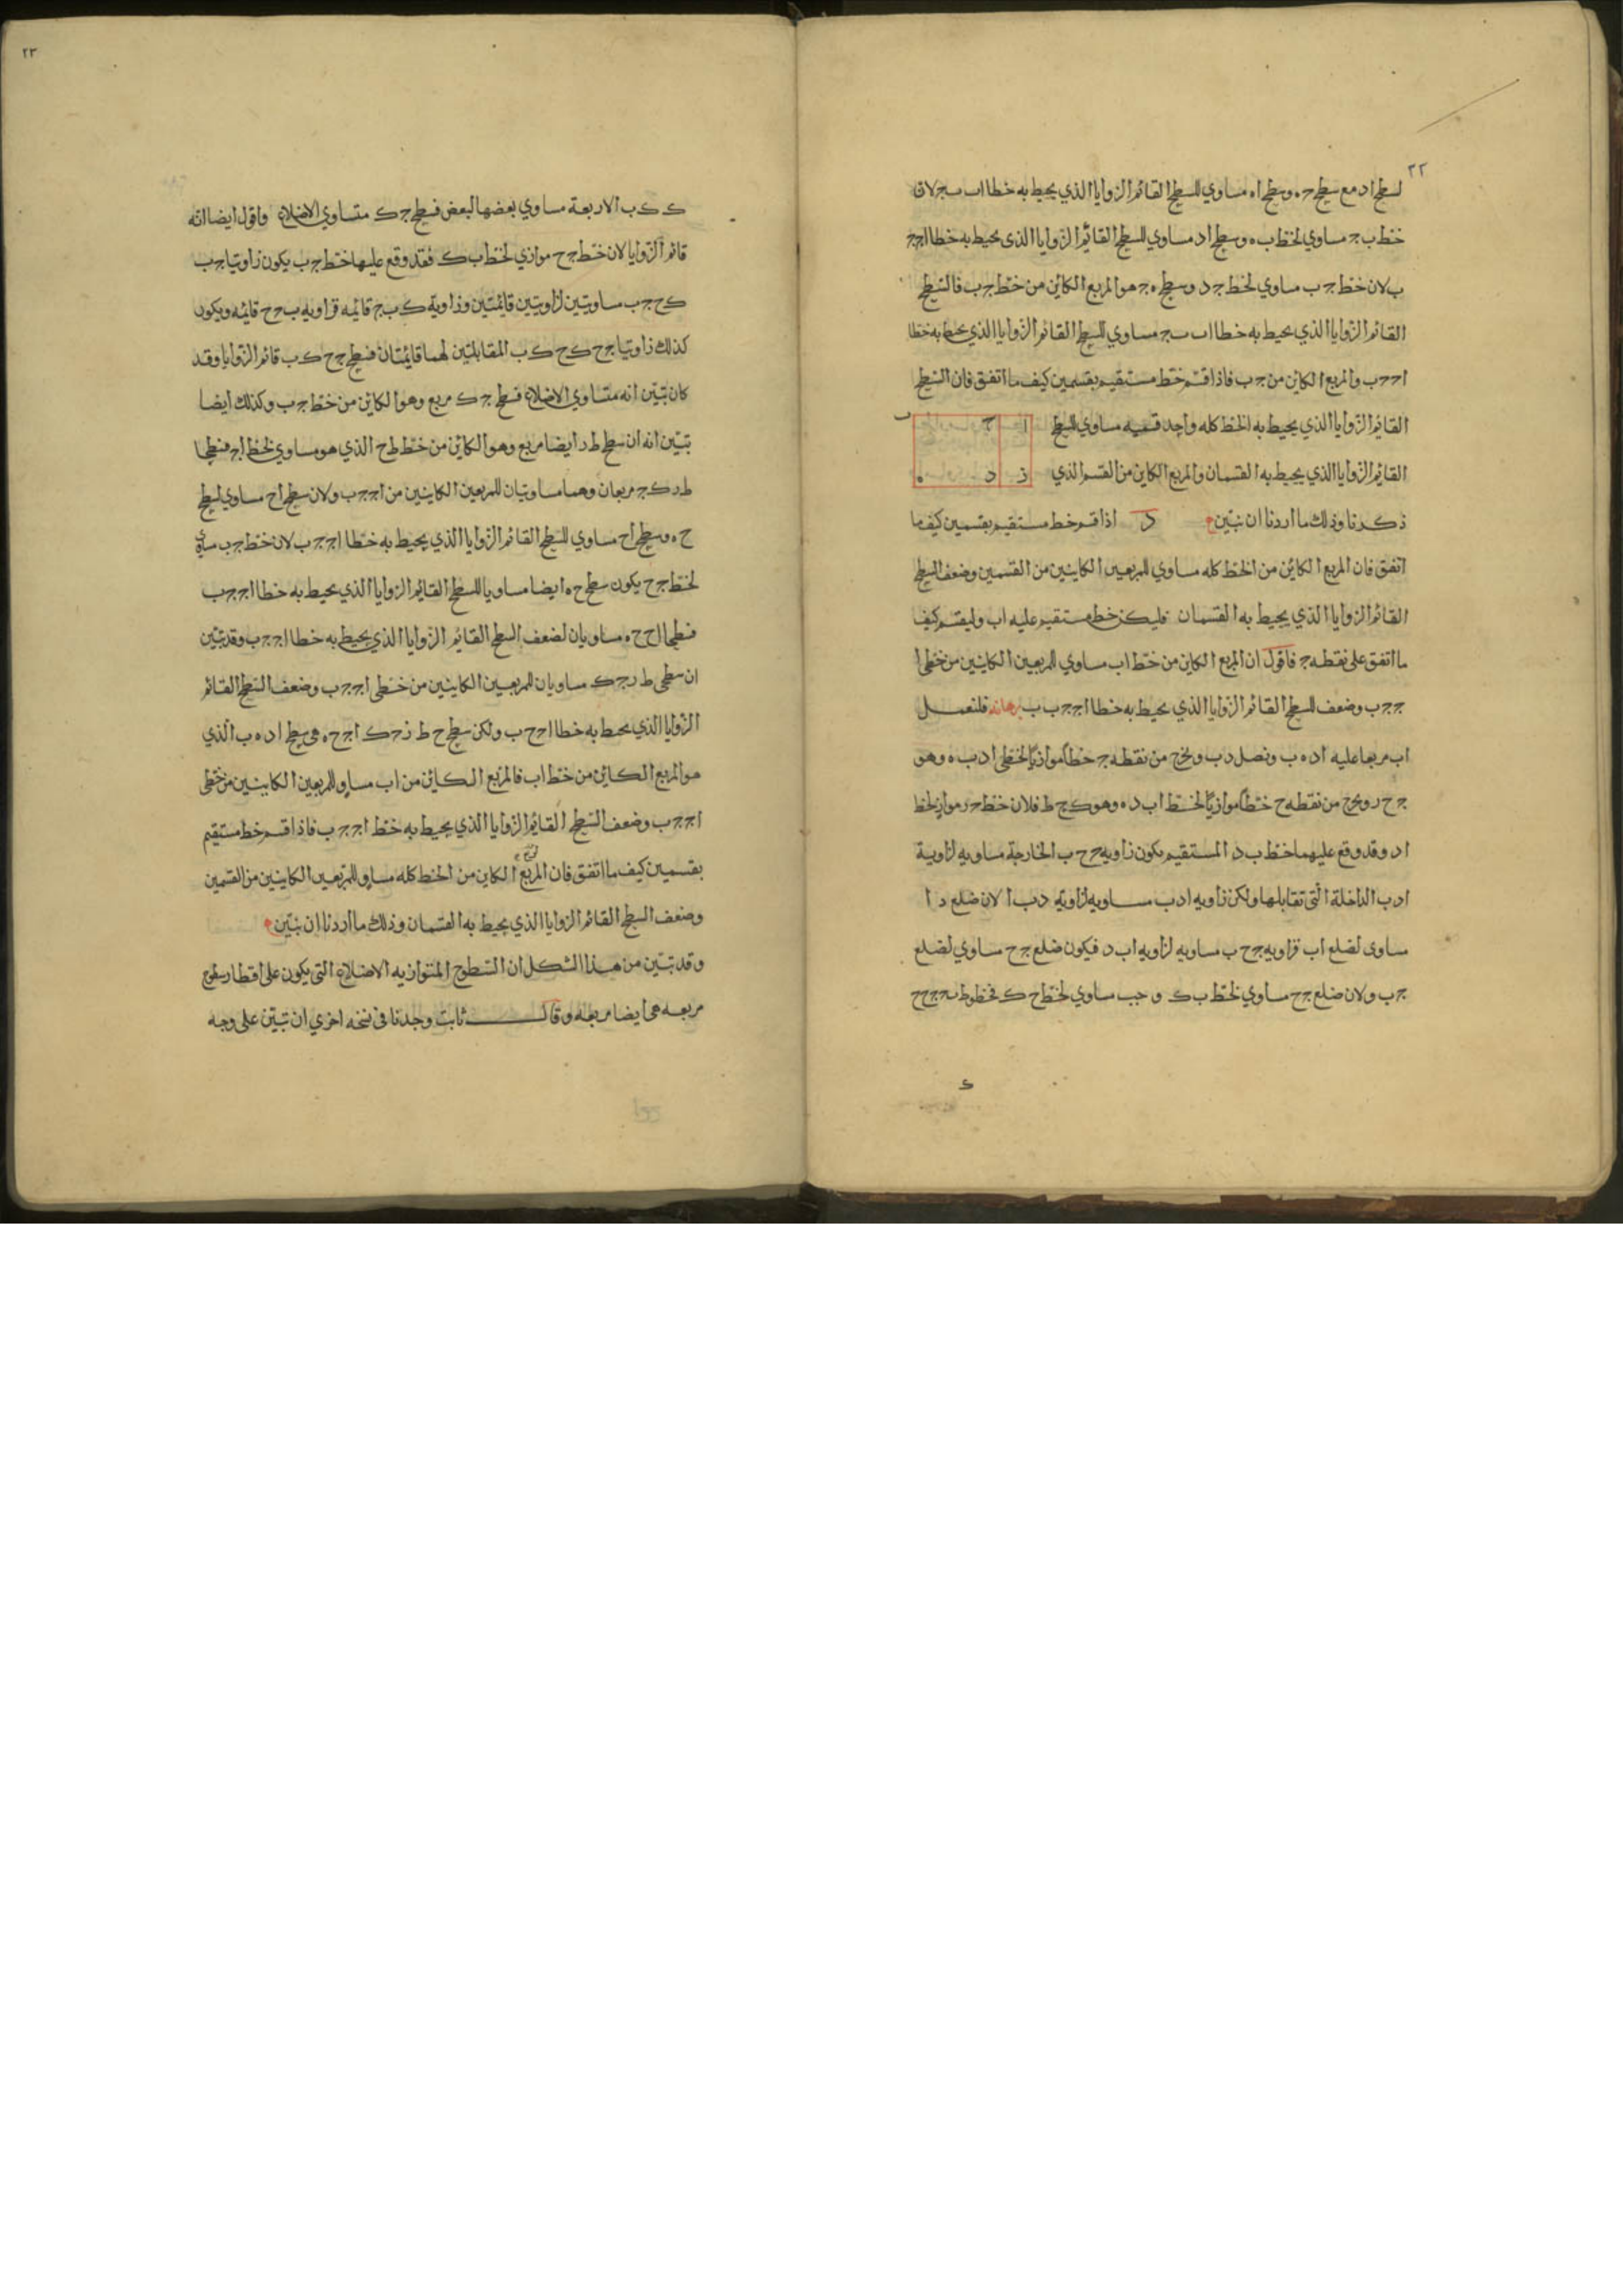 ٢٢
لسطح اد مع سطح جه وسطح اه مساوي للسطح القائم الزوايا الذي يحيط به خطا اب بج لان
خط ب ج مساوي لخط ب ه وسطح اد مساوي للسطح القائم الزوايا الذى يحيط به خطا اج ج
ب لان خط ج ب مساوي لخط ج د وسطح ه ج هو المربع الكائن من خط ج ب فالسطح
القائم الزوايا الذي يحيط به خطا اب بج مساوي للسطح القائم الزوايا الذي يحيط به خطا
اج ج ب والمربع الكائن من ج ب فاذا قسم خط مستقيم بقسمين كيف ما اتفق فان السطح
القائم الزوايا الذي يحيط به الخط كله واحد قسميه مساوي للسطح
ا ج ب
القايم الزوايا الذي يحيط به القسمان والمربع الكاين من القسم الذي
ز د ه
ذكرنا وذلك ما اردنا ان نبين د اذا قسم خط مستقيم بقسمين كيف ما
اتفق فان المربع الكائن من الخط كله مساوي للمربعين الكاينين من القسمين وضعف السطح
القائم الزوايا الذي يحيط به القسمان فليكن خط مستقيم عليه اب وليقسم كيف
ما اتفق على نقطه ج فاقول ان المربع الكاين من خط اب مساوي للمربعين الكاينين من خطي ا
ج ج ب وضعف السطح القائم الزوايا الذي يحيط به خطا اج ج ب ب برهانه فلنعمل
اب مربعا عليه اد ه ب ونصل د ب ونخرج من نقطه ج خطا موازيا لخطي اد ب ه وهو
ج ح ر ونخرج من نقطه ح خطا موازيا لخط اب د ه وهو ك ح ط فلان خط ح ر مواز لخط
اد وقد وقع عليهما خط ب د المستقيم يكون زاويه ج ح ب الخارجة مساويه لزاوية
ادب الداخلة التي تقابلها ولكن زاويه ادب مساويه لزاويه دب ا لان ضلع د ا
مساوى لضلع اب فزاويه ج ح ب مساويه لزاويه اب د فيكون ضلع ج ح مساوي لضلع
ج ب ولان ضلع ج ح مساوي لخط ب ك و ج ب مساوي لخط ح ك فخطوط ب ج ج ح
ك
٢٣
ح ك ك ب الاربعة مساوي بعضها لبعض فسطح ج ك متساوي الاضلاع واقول ايضا انه
قائم الزوايا لان خط ج ح موازي لخط ب ك فقد وقع عليها خط ج ب يكون زاويتا ج ب
ك ح ج ب مساويتين لزاويتين قائمتين وزاوية ك ب ج قايمه فزاويه ب ج ح قايمه ويكون
كذلك زاويتا ج ح ك ح ك ب المقابلتين لهما قايمتان فسطح ج ح ك ب قائم الزوايا وقد
كان تبين انه متساوي الاضلاع فسطح ج ك مربع وهو الكائن من خط ج ب وكذلك ايضا
تبين انه ان سطح ط ر ايضا مربع وهو الكائن من خط ط ح الذي هو مساوي لخط اج فسطحا
ط ر ك ج مربعان وهما مساويتان للمربعين الكاينين من اج ج ب ولان سطح اح مساوي لسطح
ح ه وسطح اح مساوي للسطح القائم الزوايا الذي يحيط به خطا اج ج ب لان خط ج ب مساوي
لخط ج ح يكون سطح ح ه ايضا مساويا للسطح القايم الزوايا الذي يحيط به خطا اج ج ب
فسطحا اح ح ه مساويان لضعف السطح القايم الزوايا الذي يحيط به خطا اج ج ب وقد تبين
ان سطحى ط ر ج ك مساويان للمربعين الكاينين من خطى اج ج ب وضعف السطح القائم
الزوايا الذي يحيط به خطا اج ج ب ولكن سطوح ط ز ح ك اح ح ه هي سطح اد ه ب الذي
هو المربع الكائن من خط اب فالمربع الكائن من اب مساو للمربعين الكاينين من خطى
اج ج ب وضعف السطح القايم الزوايا الذي يحيط به خط اج ج ب فاذا قسم خط مستقيم
بقسمين كيف ما اتفق فان المربع الكاين من الخط كله مساو للمربعين الكاينين من القسمين
وضعف السطح القائم الزوايا الذي يحيط به القسمان وذلك ما اردنا ان نبين
وقد تبين من هذا الشكل ان السطوح المتوازيه الاضلاع التي يكون على اقطار سطوح
مربعه هي ايضا مربعه وقال ثابت وجدنا في نسخه اخري ان تبين على وجه